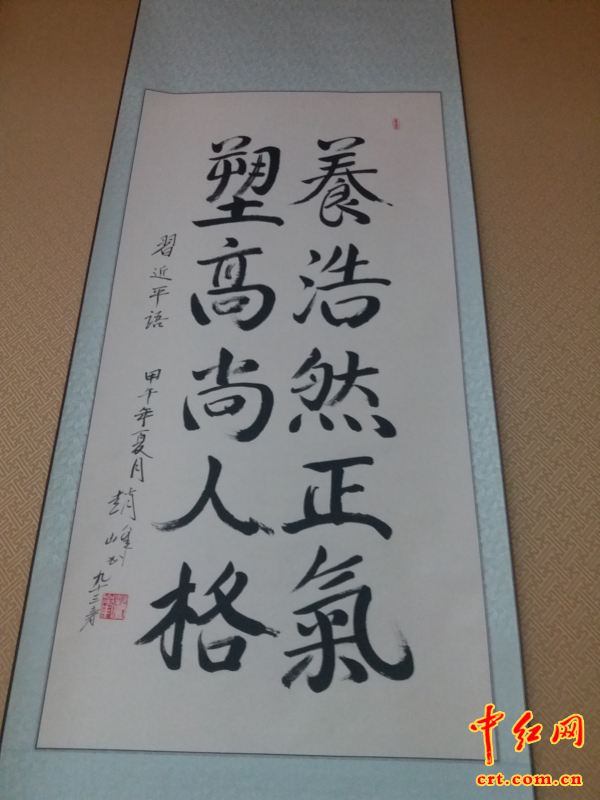 養浩然正氣
塑高尚人格
習近平語
甲午年夏月
趙峰
九十三壽
中红网
crt.com.cn